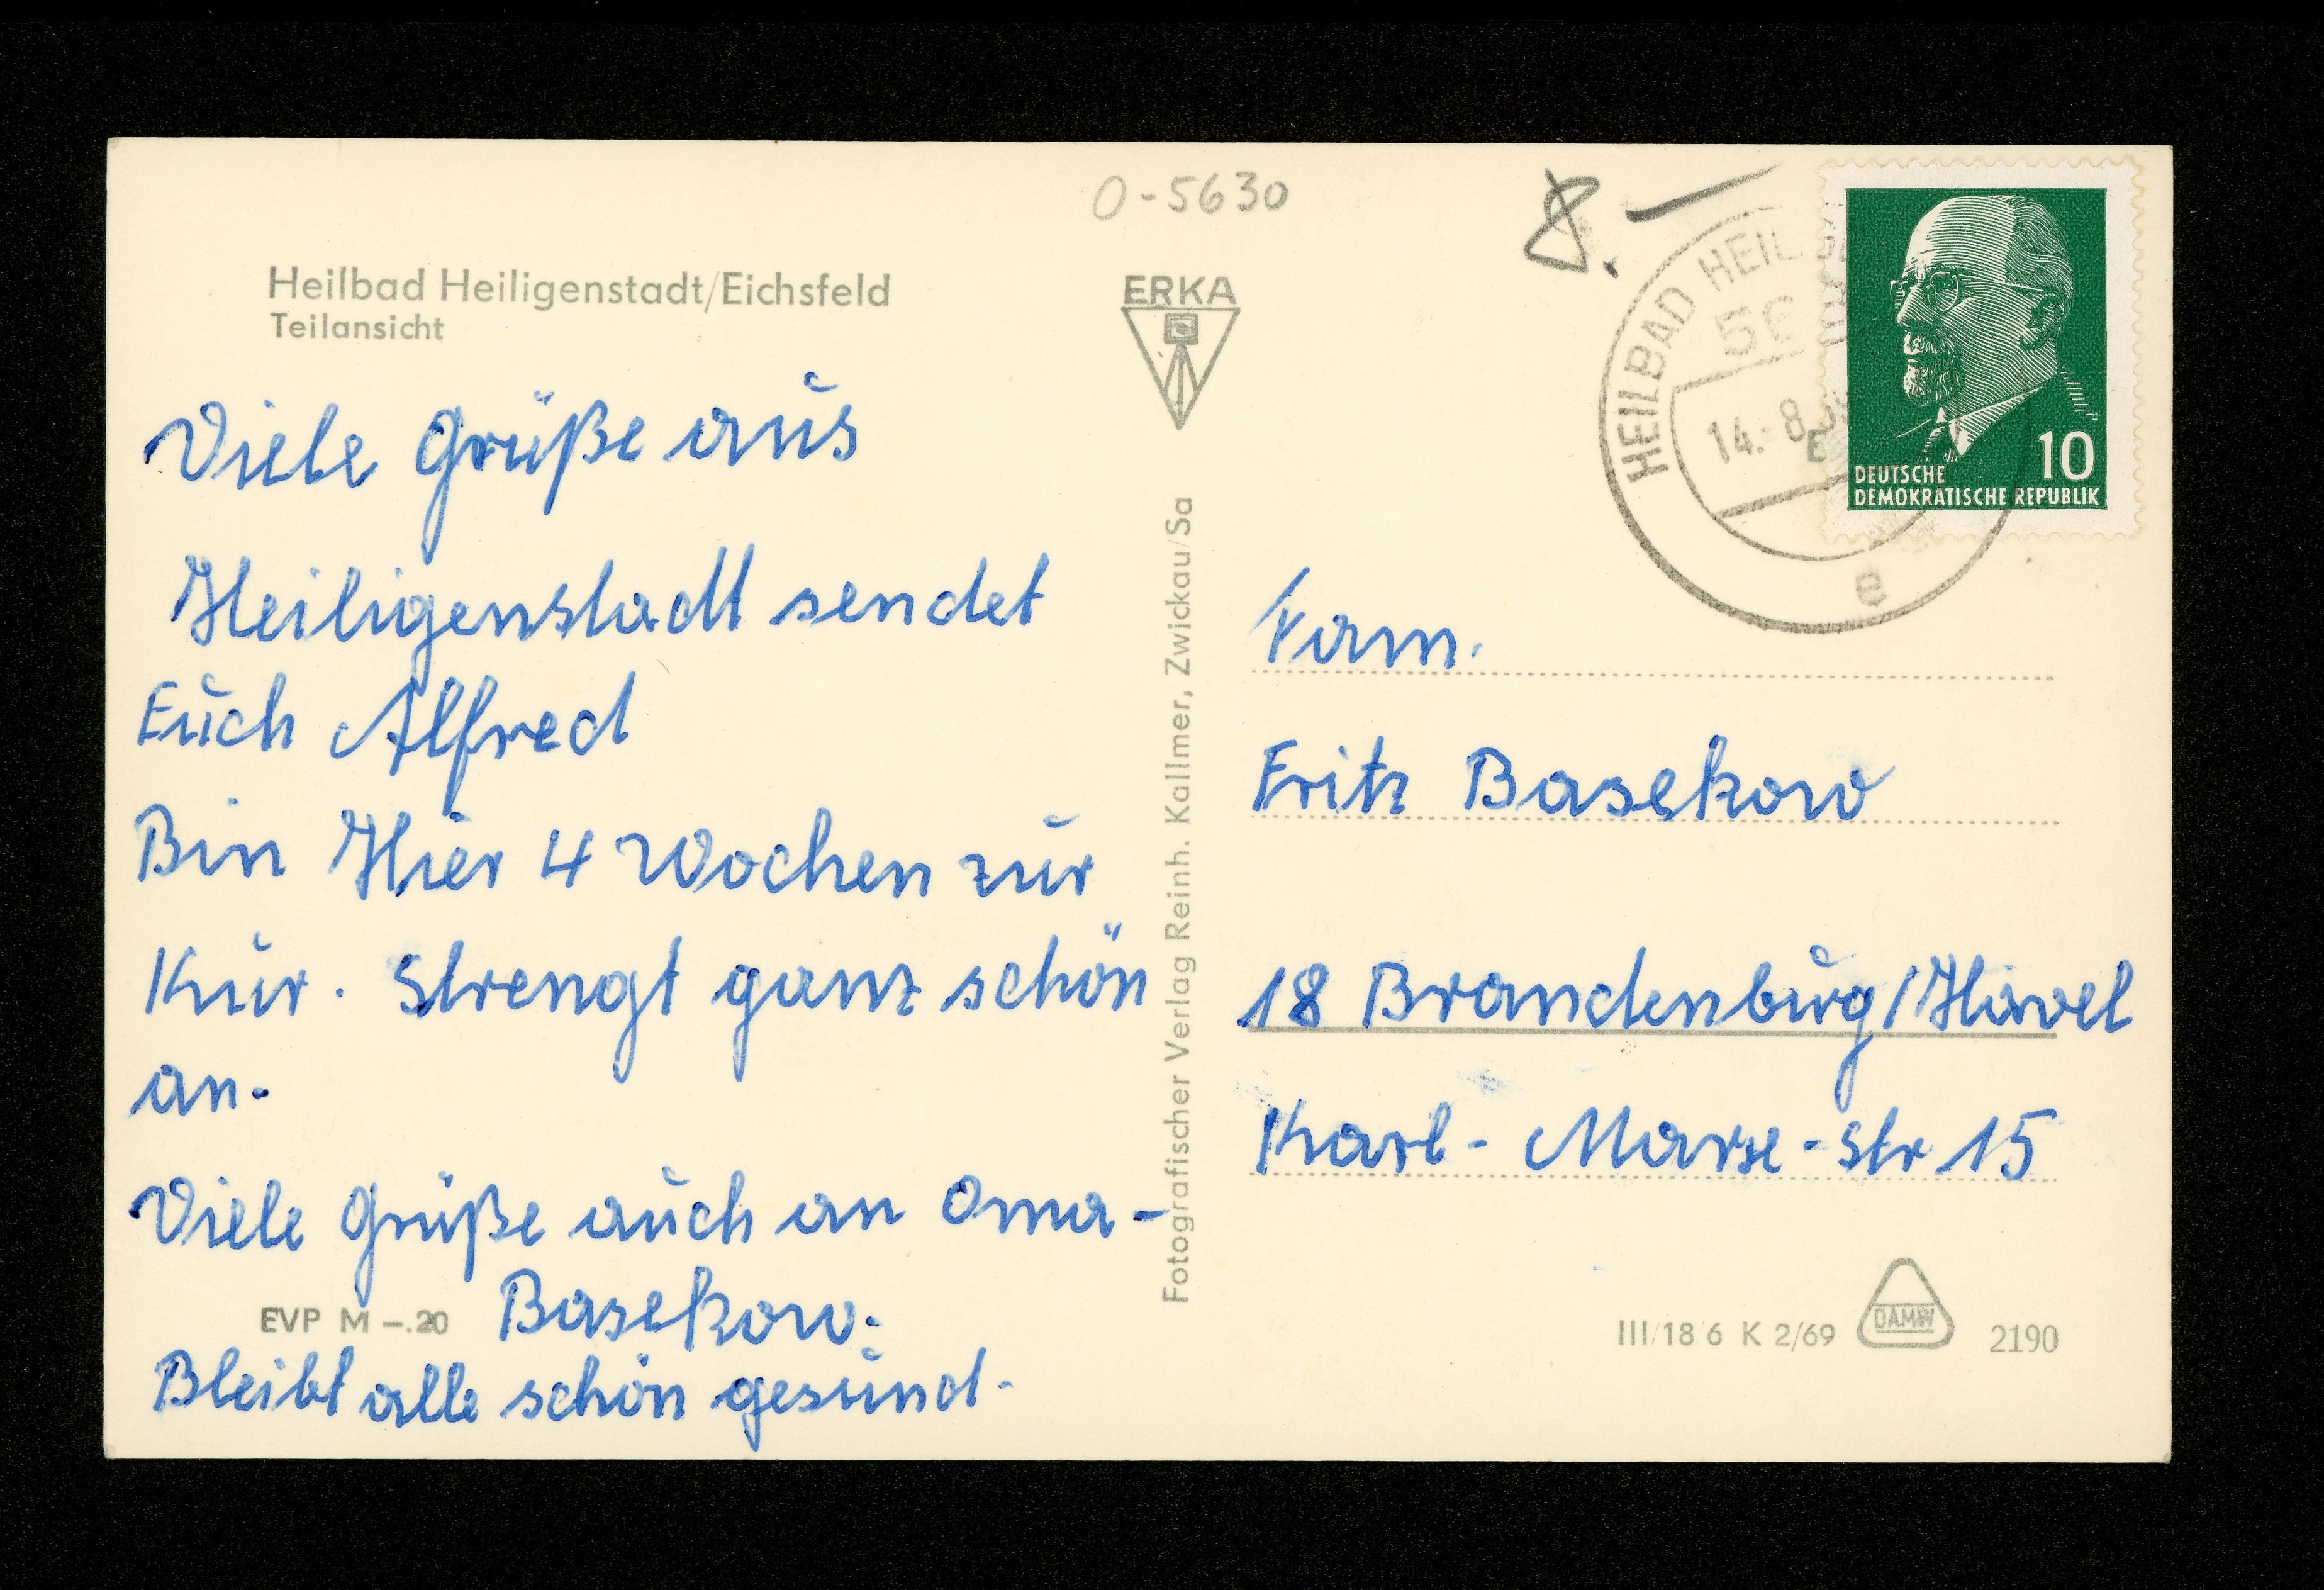 O-5630
8.—
Heilbad Heiligenstadt/Eichsfeld
Teilansicht
ERKA
HEILBAD HEIL
14.-8
e
10
DEUTSCHE
DEMOKRATISCHE REPUBLIK
Viele Grüße aus
Heiligenstadt sendet
Euch Alfred
Bin Hier 4 Wochen zur
Kur. Strengt ganz schön
an.
Viele Grüße auch an Oma-
Basekow.
Bleibt alle schön gesund.
EVP M –.20
Fotografischer Verlag Reinh. Kallmer, Zwickau/Sa
Fam.
Fritz Basekow
18 Brandenburg/Havel
Karl-Marx-Str 15
III/18/6 K 2/69
DAMW
2190